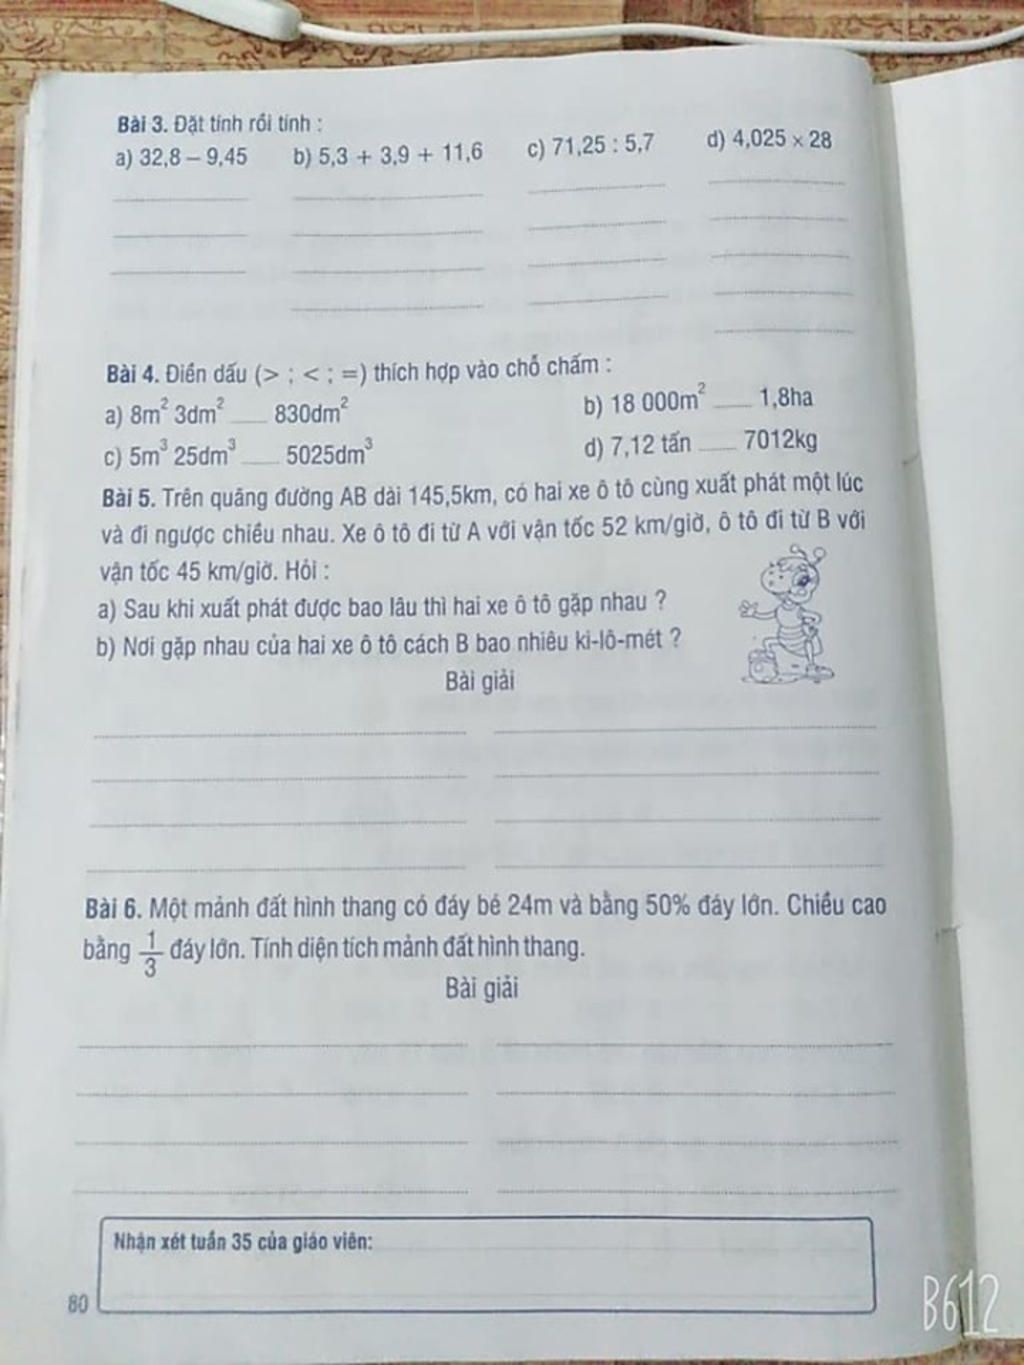 Bài 3. Đặt tính rồi tính :
a) 32,8 – 9,45 b) 5,3 + 3,9 + 11,6 c) 71,25 : 5,7 d) 4,025 × 28
Bài 4. Điền dấu (> ; < ; =) thích hợp vào chỗ chấm :
a) 8m² 3dm² ..... 830dm² b) 18 000m² ..... 1,8ha
c) 5m³ 25dm³ ..... 5025dm³ d) 7,12 tấn ..... 7012kg
Bài 5. Trên quãng đường AB dài 145,5km, có hai xe ô tô cùng xuất phát một lúc
và đi ngược chiều nhau. Xe ô tô đi từ A với vận tốc 52 km/giờ, ô tô đi từ B với
vận tốc 45 km/giờ. Hỏi :
a) Sau khi xuất phát được bao lâu thì hai xe ô tô gặp nhau ?
b) Nơi gặp nhau của hai xe ô tô cách B bao nhiêu ki-lô-mét ?
Bài giải
Bài 6. Một mảnh đất hình thang có đáy bé 24m và bằng 50% đáy lớn. Chiều cao
bằng 1/3 đáy lớn. Tính diện tích mảnh đất hình thang.
Bài giải
Nhận xét tuần 35 của giáo viên:
80
B612